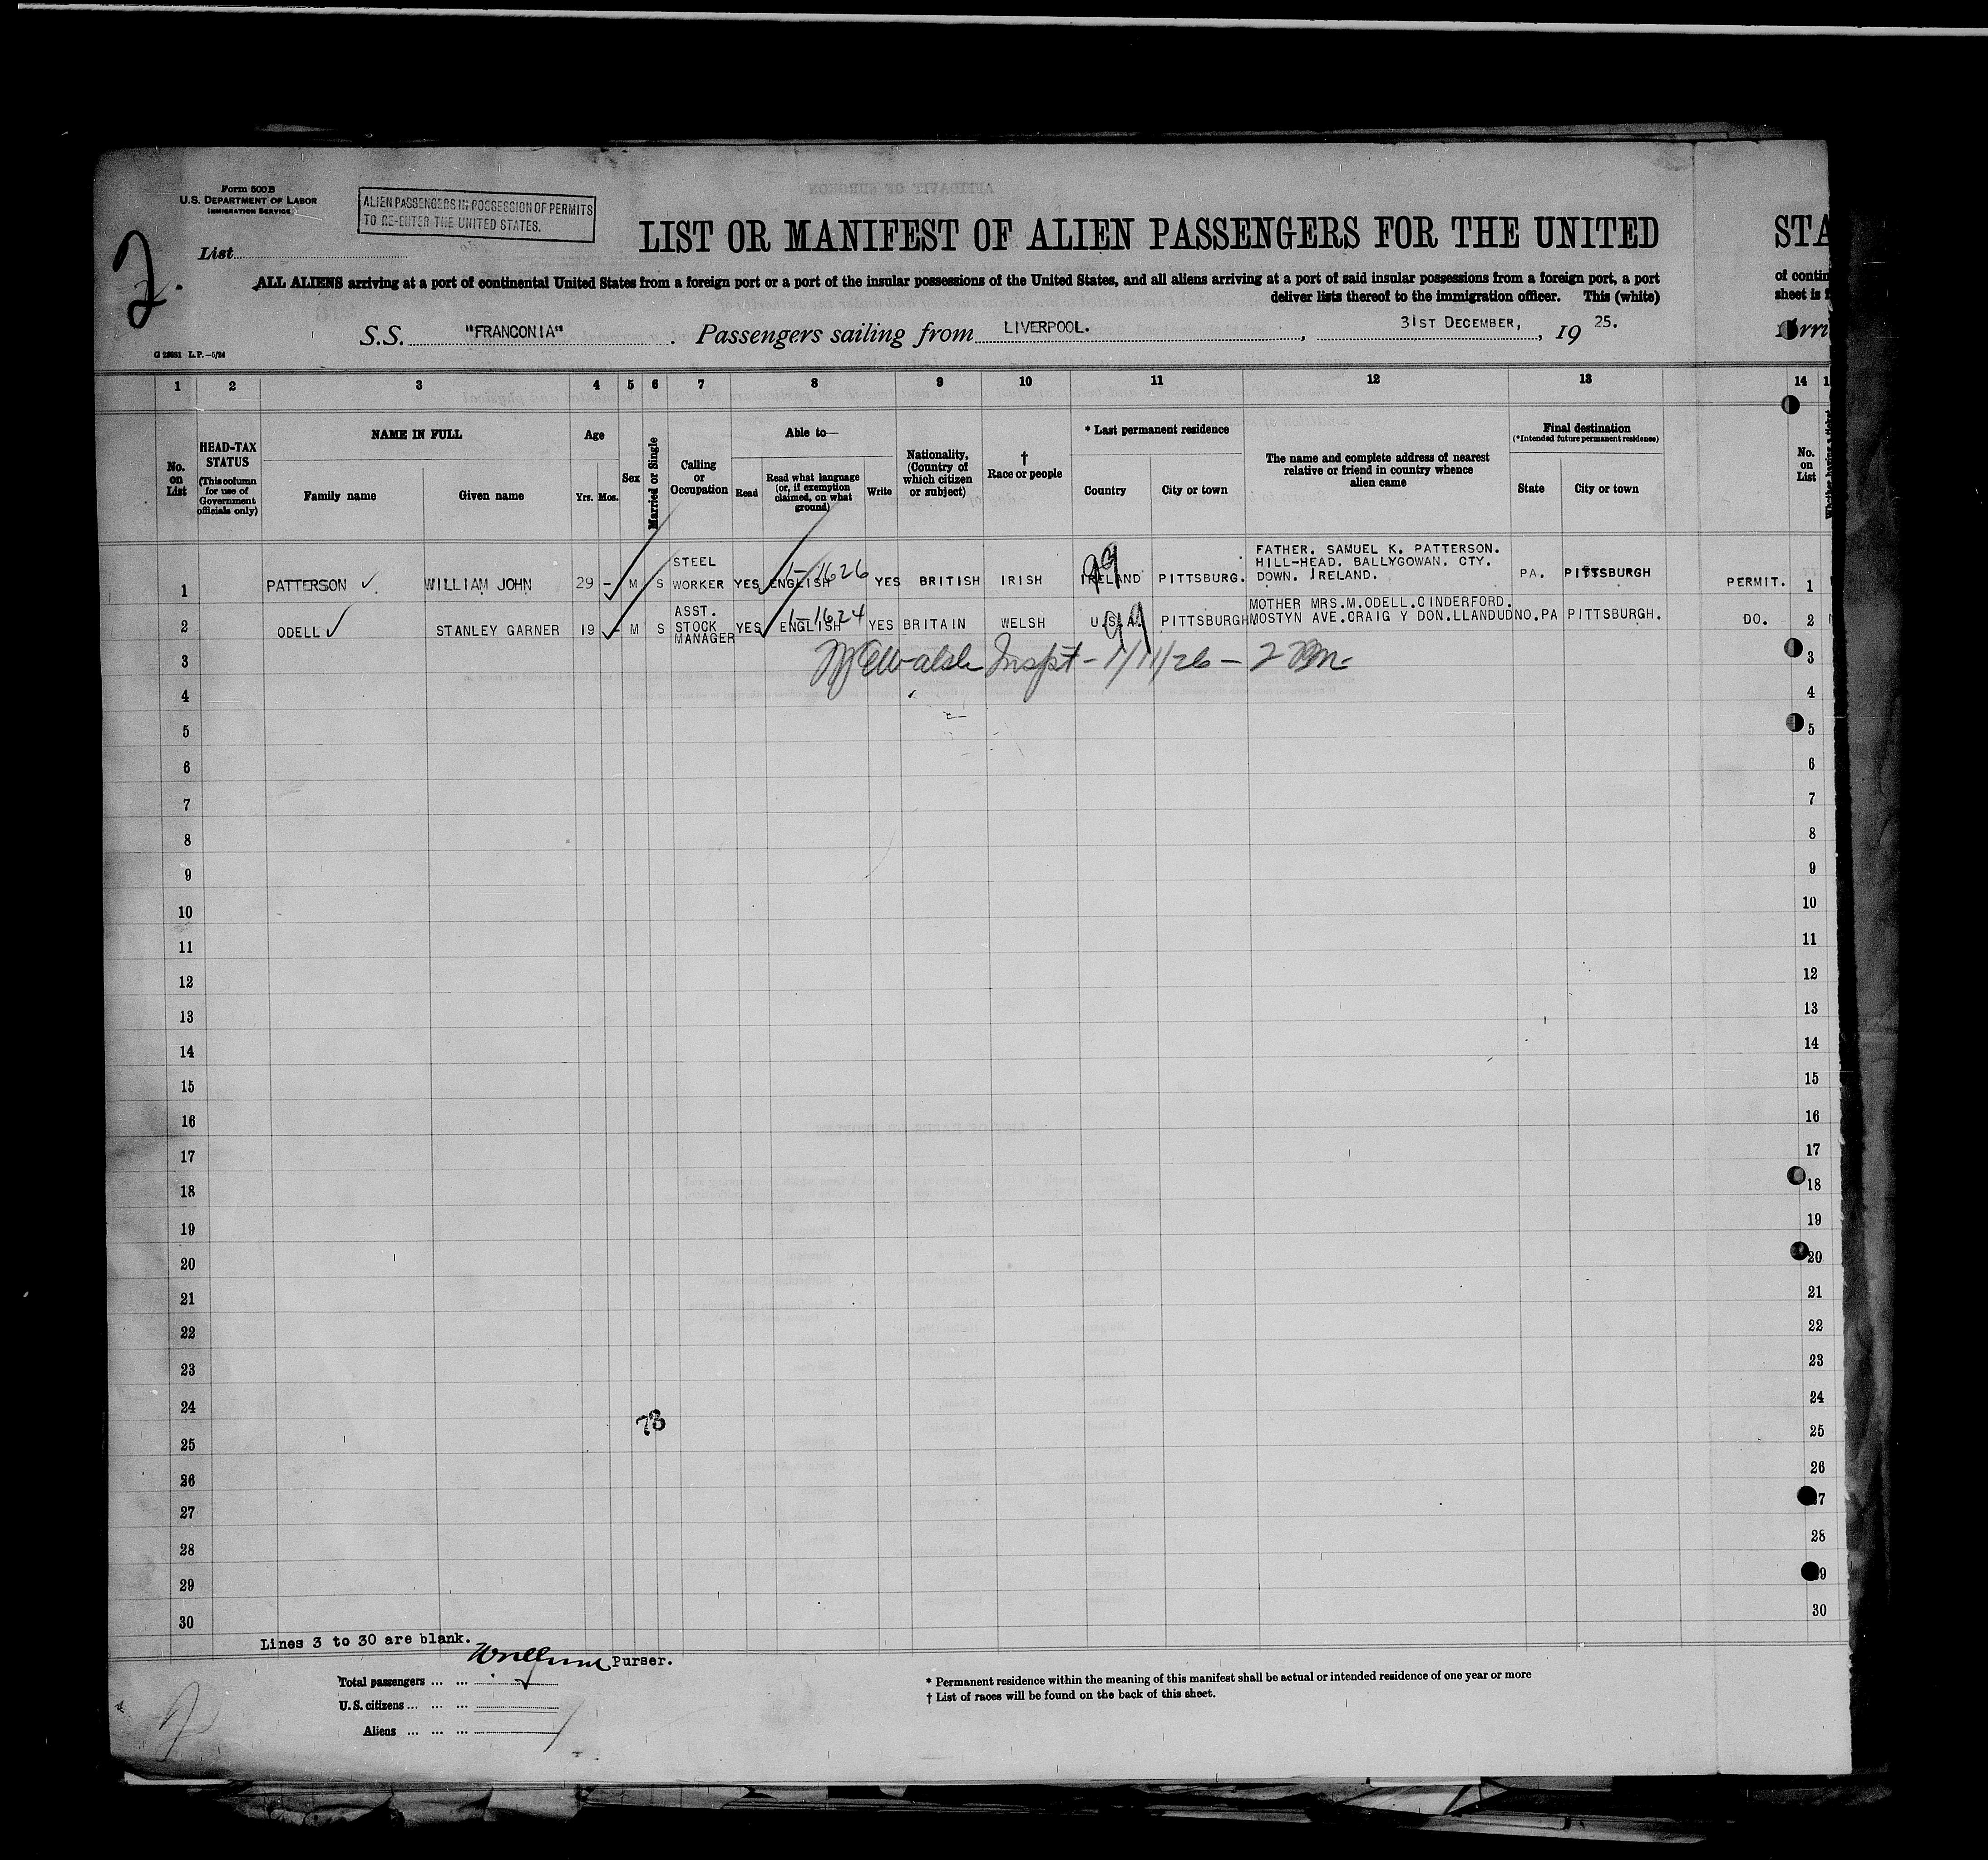 Form 500 B
U.S. DEPARTMENT OF LABOR
IMMIGRATION SERVICE
ALIEN PASSENGERS IN POSSESSION OF PERMITS
TO RE-ENTER THE UNITED STATES.
2.
List
LIST OR MANIFEST OF ALIEN PASSENGERS FOR THE UNITED STA
ALL ALIENS arriving at a port of continental United States from a foreign port or a port of the insular possessions of the United States, and all aliens arriving at a port of said insular possessions from a foreign port, a port of contin
deliver lists thereof to the immigration officer. This (white) sheet is
S.S. "FRANCONIA". Passengers sailing from LIVERPOOL., 31ST DECEMBER, , 19 25. Arri
L.P.-5/24
1 2 3 4 5 6 7 8 9 10 11 12 13 14
No. on List
HEAD-TAX STATUS
(This column for use of Government officials only)
NAME IN FULL
Family name Given name
Age
Yrs. Mos.
Sex
Married or Single
Calling or Occupation
Able to—
Read
Read what language (or, if exemption claimed, on what ground)
Write
Nationality, (Country of which citizen or subject)
† Race or people
* Last permanent residence
Country City or town
The name and complete address of nearest relative or friend in country whence alien came
Final destination
(*Intended future permanent residence)
State City or town
No. on List
Whether having a ticket
1 PATTERSON WILLIAM JOHN 29 - M S STEEL WORKER YES ENGLISH 1-1626 YES BRITISH IRISH IRELAND 99 PITTSBURG. FATHER. SAMUEL K. PATTERSON. HILL-HEAD. BALLYGOWAN. CTY. DOWN. IRELAND. PA. PITTSBURGH PERMIT. 1
2 ODELL STANLEY GARNER 19 - M S ASST. STOCK MANAGER YES ENGLISH 1-1624 YES BRITAIN WELSH U.S.A. 99 PITTSBURGH MOTHER MRS.M.ODELL.CINDERFORD. MOSTYN AVE.CRAIG Y DON.LLANDUDNO. PA PITTSBURGH. DO. 2
3 Walsh Inspt - 1/11/26 - 3
4 4
5 5
6 6
7 7
8 8
9 9
10 10
11 11
12 12
13 13
14 14
15 15
16 16
17 17
18 18
19 19
20 20
21 21
22 22
23 23
24 24
73
25 25
26 26
27 27
28 28
29 29
30 30
Lines 3 to 30 are blank.
Purser.
Total passengers ... ...
U.S. citizens ... ... ...
Aliens ... ... ...
* Permanent residence within the meaning of this manifest shall be actual or intended residence of one year or more
† List of races will be found on the back of this sheet.